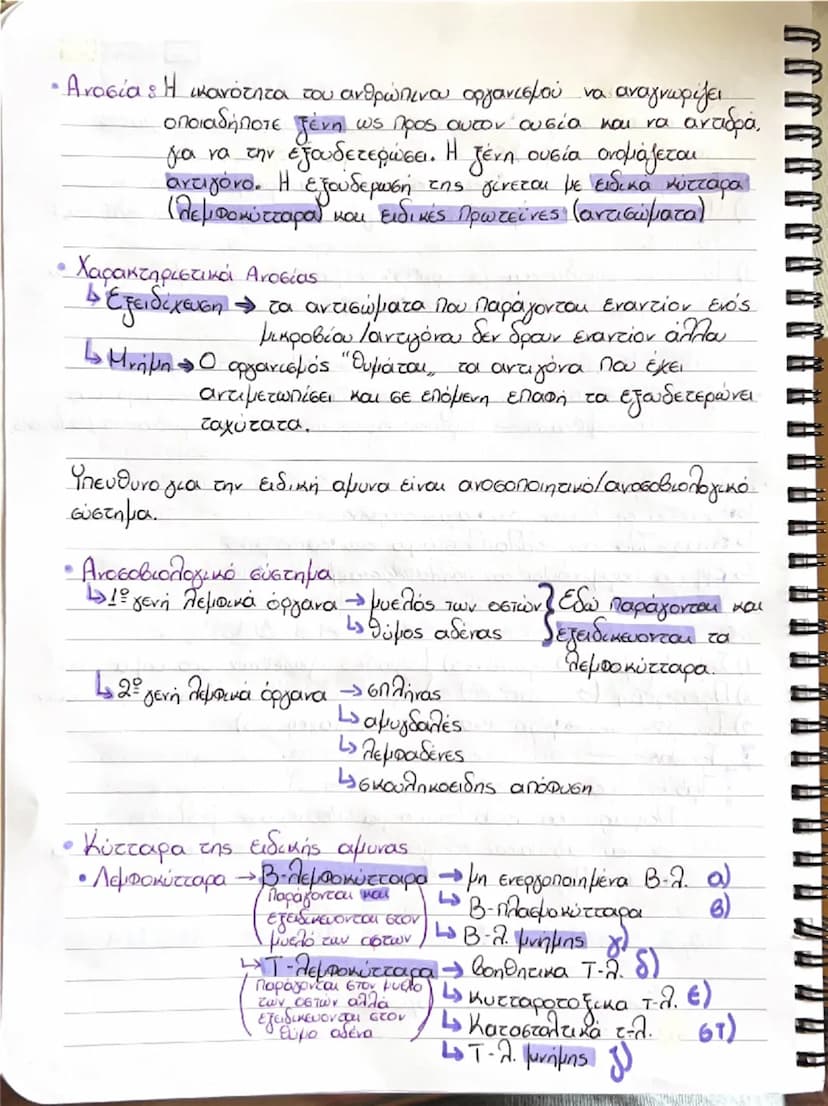 • Ανοσία: Η ικανότητα του ανθρώπινου οργανισμού να αναγνωρίζει
οποιαδήποτε ξένη ως προς αυτόν ουσία και να αντιδρά,
για να την εξουδετερώσει. Η ξένη ουσία ονομάζεται
αντιγόνο. Η εξουδερωσή της γίνεται με ειδικά κύτταρα
(λεμφοκύτταρα) και ειδικές πρωτεΐνες (αντισώματα)
• Χαρακτηριστικά Ανοσίας
↳ Εξειδίκευση → τα αντισώματα που παράγονται εναντίον ενός
μικροβίου/αντιγόνου δεν δρουν εναντίον άλλου
↳ Μνήμη → Ο οργανισμός "θυμάται" τα αντιγόνα που έχει
αντιμετωπίσει και σε επόμενη επαφή τα εξουδετερώνει
ταχύτατα.
Υπευθυνο για την ειδική αμυνα είναι ανοσοποιητικό/ανοσοβιολογικό
σύστημα.
• Ανοσοβιολογικό σύστημα
↳ 1ο γενή λεμφικά όργανα → μυελός των οστών } Εδώ παράγονται και
↳ θύμος αδένας } εξειδικευονται τα
λεμφοκύτταρα.
↳ 2ο γενή λεμφικά όργανα → σπλήνας
↳ αμυγδαλές
↳ λεμφαδένες
↳ σκουληκοειδης απόφυση
• Κύτταρα της ειδικής αμυνας
• Λεμφοκύτταρα → Β-λεμφοκύτταρα → μη ενεργοποιημένα Β-λ. α)
(Παράγονται και ↳ Β-πλασμοκύτταρα β)
εξειδικευονται στον
μυελό των οστων) ↳ Β-λ. μνήμης γ)
↳ Τ-λεμφοκύτταρα → βοηθητικα Τ-λ. δ)
(Παράγονται στον μυελο ↳ κυτταροτοξικα τ-λ. ε)
των οστών αλλά
εξειδικευονται στον ↳ Κατασταλτικά τ-λ. στ)
θύμο αδένα)
↳ Τ-λ. μνήμης ζ)